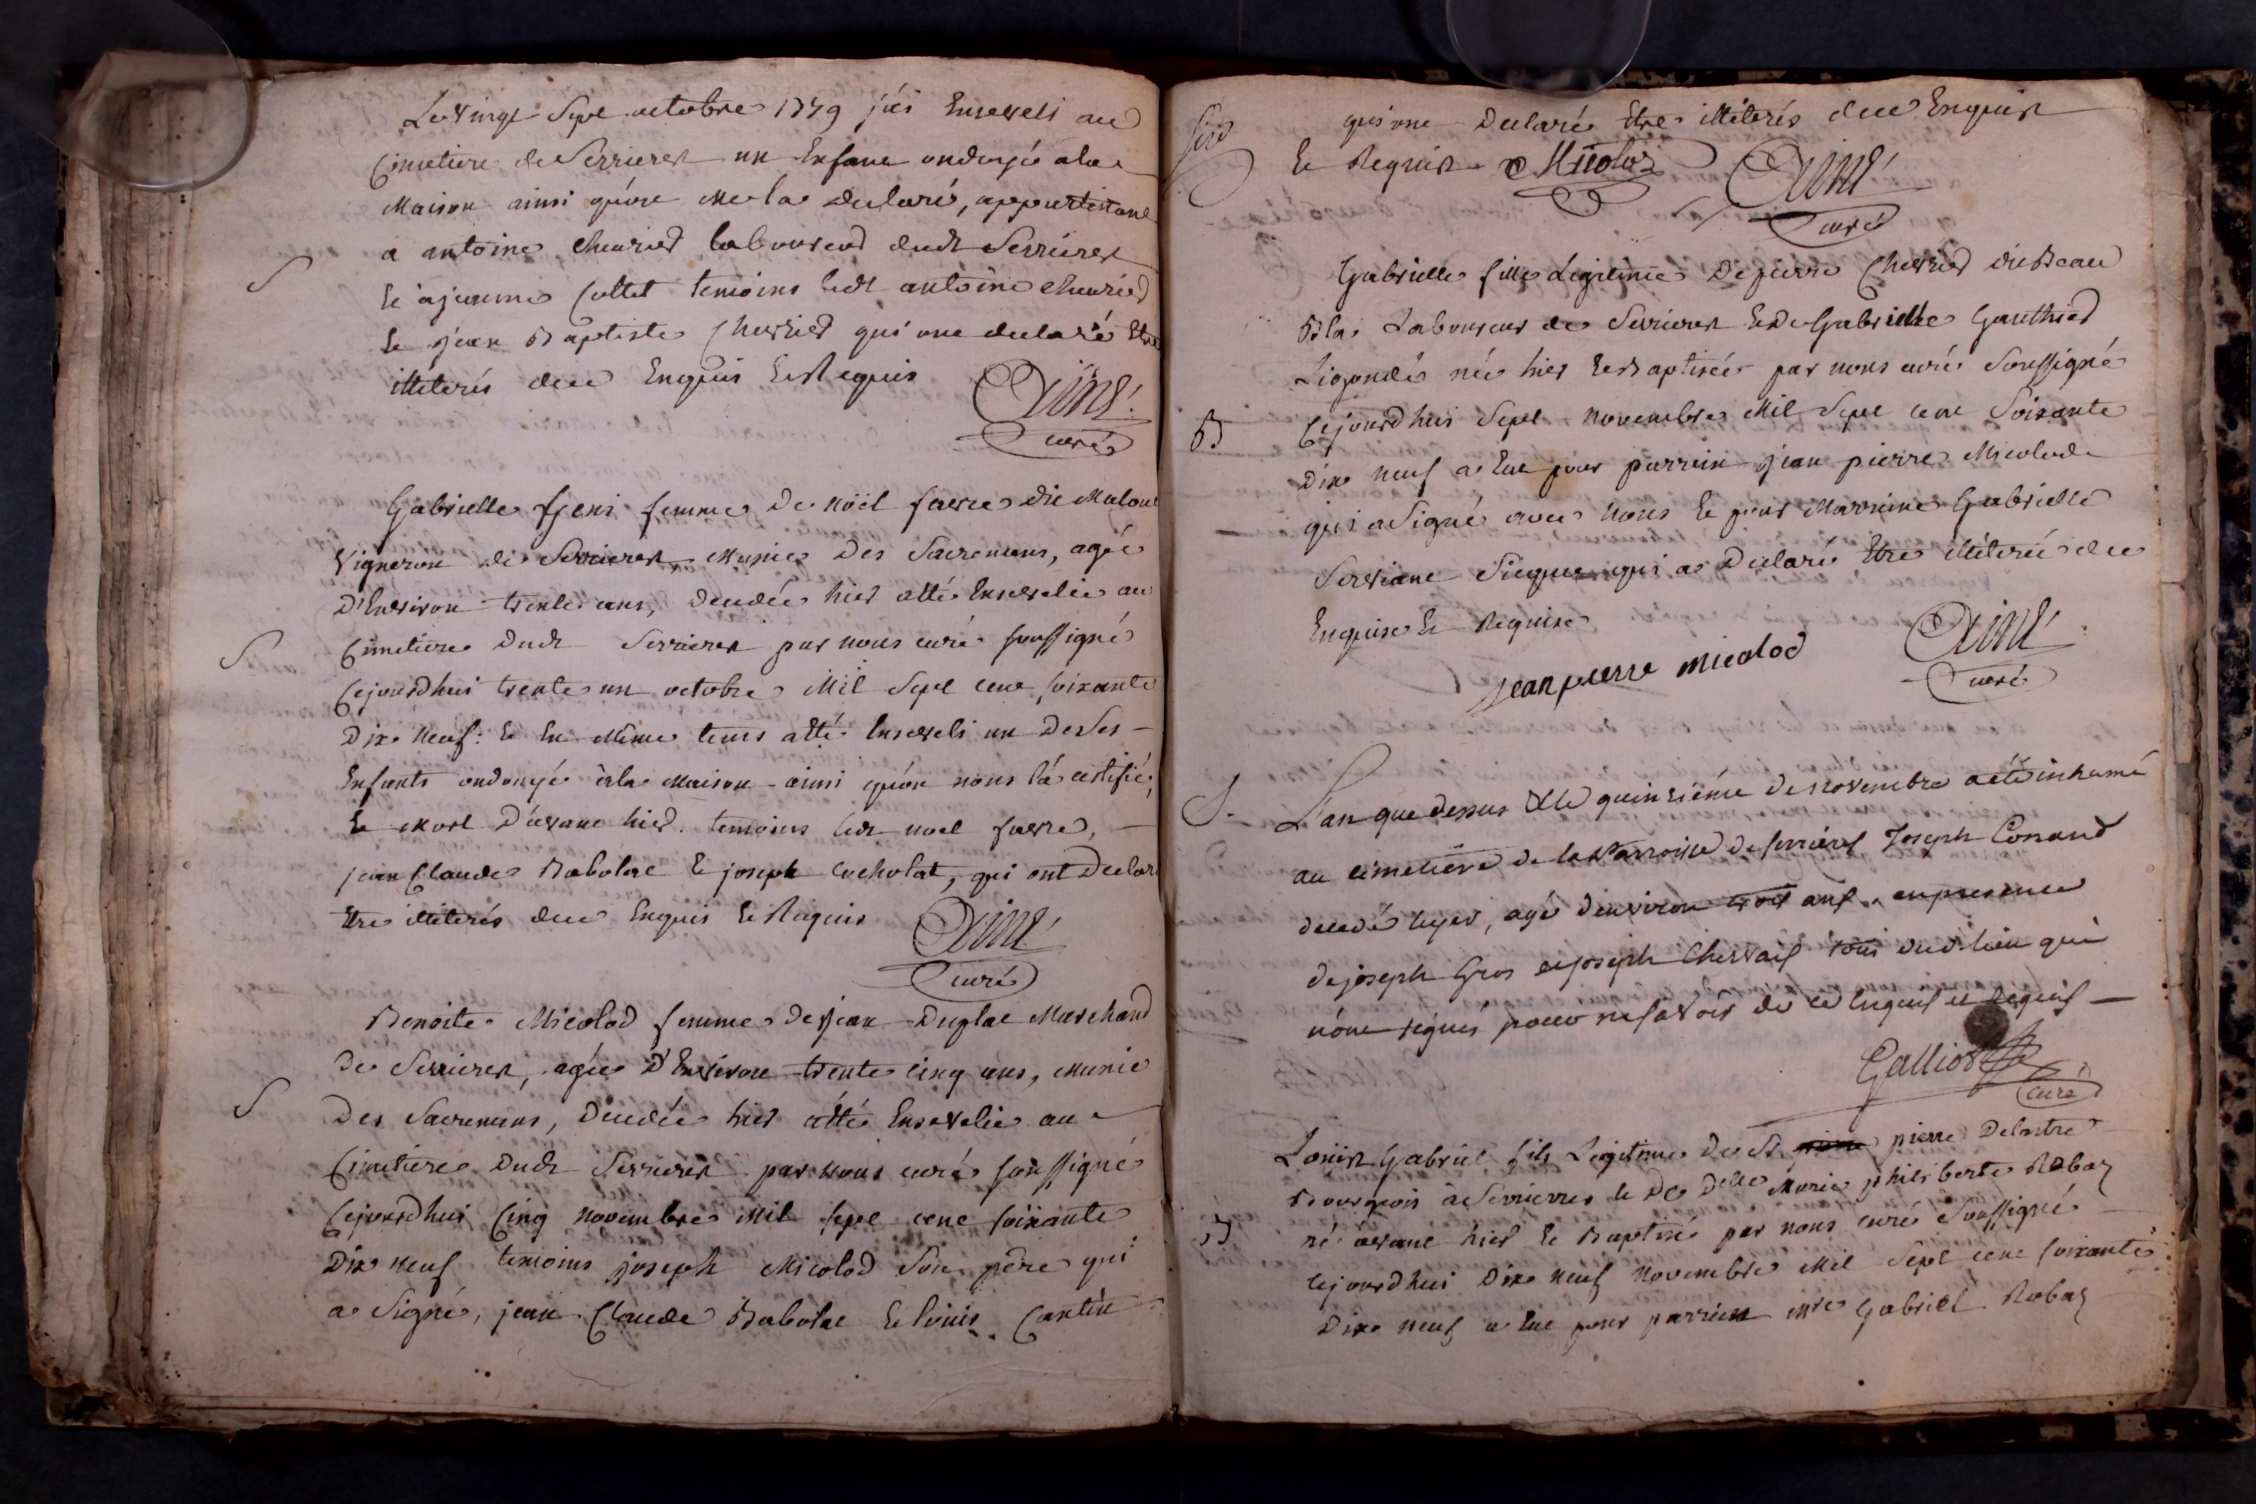 Le vingt Sept octobre 1779 j'ai Enseveli au
Cimetiere de Serrieres un Enfant ondoyé a la
Maison ainsi qu'on me la declaré, appartenant
a antoine chevrier laboureur dudt Serrieres
S
Et a jeanne Collet temoins ledt antoine chevrier
Et jean Baptiste Chevrier qui ont declaré Etre
illiterés dece Enquis Et Requis
Curé
Gabrielle femme de Nöel favre dit
Vigneron de Serrieres, Munie Des Sacremens, agée
D'Environ trente ans, Decedée hier a été Ensevelie au
S
Cimetiere Dudt Serrieres par nous curé soussigné
Cejourdhui trente un octobre Mil Sept cent soixante
Dix Neuf: Et En Même tems a été Enseveli un De Ses
Enfants ondoyé à la Maison ainsi qu'on nous l'a certifié,
Et Mort D'avant hier. temoins ledt noel favre,
jean Claude Babolat Et joseph Cucholat, qui ont Declaré
Etre illiterés dece Enquis Et Requis
curé
Benoite Micolod femme de jean Duplat Marchand
De Serrieres, agée D'Environ trente cinq ans, Munie
S
Des Sacremens, Decedée hier a été Ensevelie au
Cimetiere Dudt Serrieres par nous curé soussigné
Cejourdhui Cinq Novembre Mil sept cent soixante
Dix neuf temoins joseph Micolod Son pere qui
a Signé, jean Claude Babolat Et louis Cantin
qui ont Declaré Etre illiterés dece Enquis
Et Requis Micolod
curé
Gabrielle fille Legitime De pierre Chevrier dit Beau
Laboureur de Serrieres Et De Gabrielle Gauthier
née hier Et Baptisée par nous curé Soussigné
B
Cejourdhui Sept Novembre Mil Sept cent Soixante
Dix neuf a Eut pour parrein jean pierre Micolod
qui a Signé avec Nous Et pour Marreine Gabrielle
qui a Declaré Etre illiterée dece
Enquise Et Requise
jean pierre micolod
curé
S.
L'an que dessus & le quinziéme de novembre a été inhumé
au cimetiere de la Parroisse de serrieres Joseph Conand
decedé hyer, agé d'environ trois ans, en presence
de joseph Gros et joseph Chervais tous dud. lieu qui
n'ont signés pour ne savoir de ce Enquis et Requis
Galliod
Curé
Louis Gabriel fils Legitime De Sr pierre Delastre
Bourgeois à Serrieres Et De Delle Marie philiberte Robaz
B
né avant hier Et Baptisé par nous curé Soussigné
Cejourdhui Dix Neuf Novembre Mil Sept cent soixante
Dix neuf a Eut pour parrein mre Gabriel Robaz